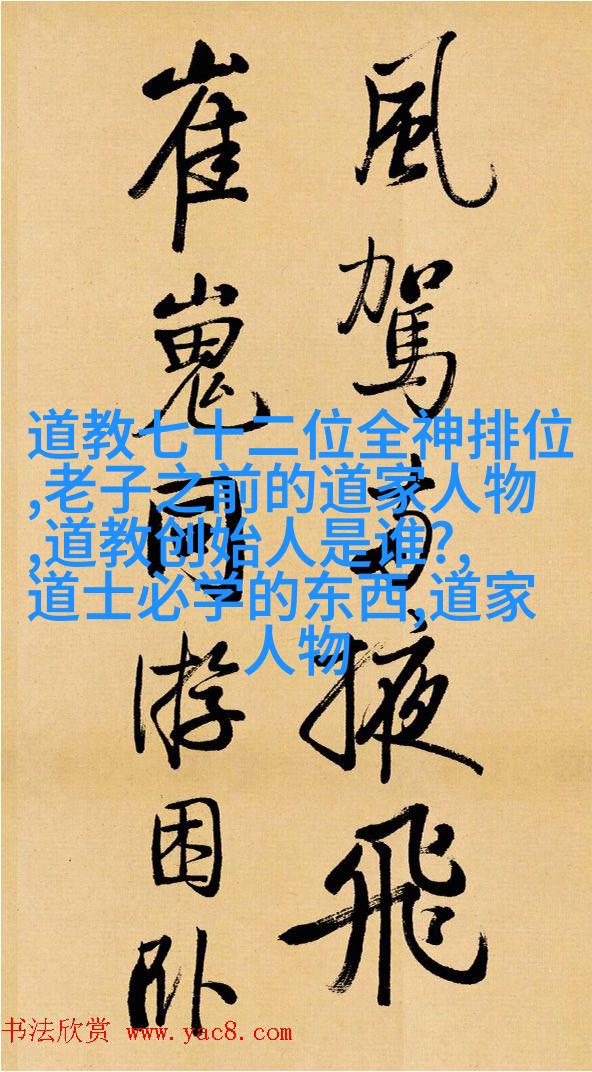 風駕掖飛
崔嵬游困卧
道教七十二位全神排位
,老子之前的道家人物
,道教创始人是谁?,
道士必学的东西,道家
人物
书法欣赏 www.yac8.com